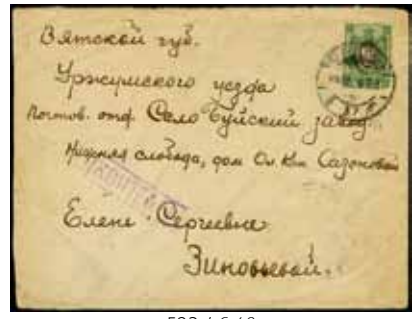 Вятской губ.
Уржумского уезда
Почтов. отд. Село Буйский завод
Нижняя слобода, дом Ол. Кон. Сазоновой
Елене Сергеевне
Зиновьевой.